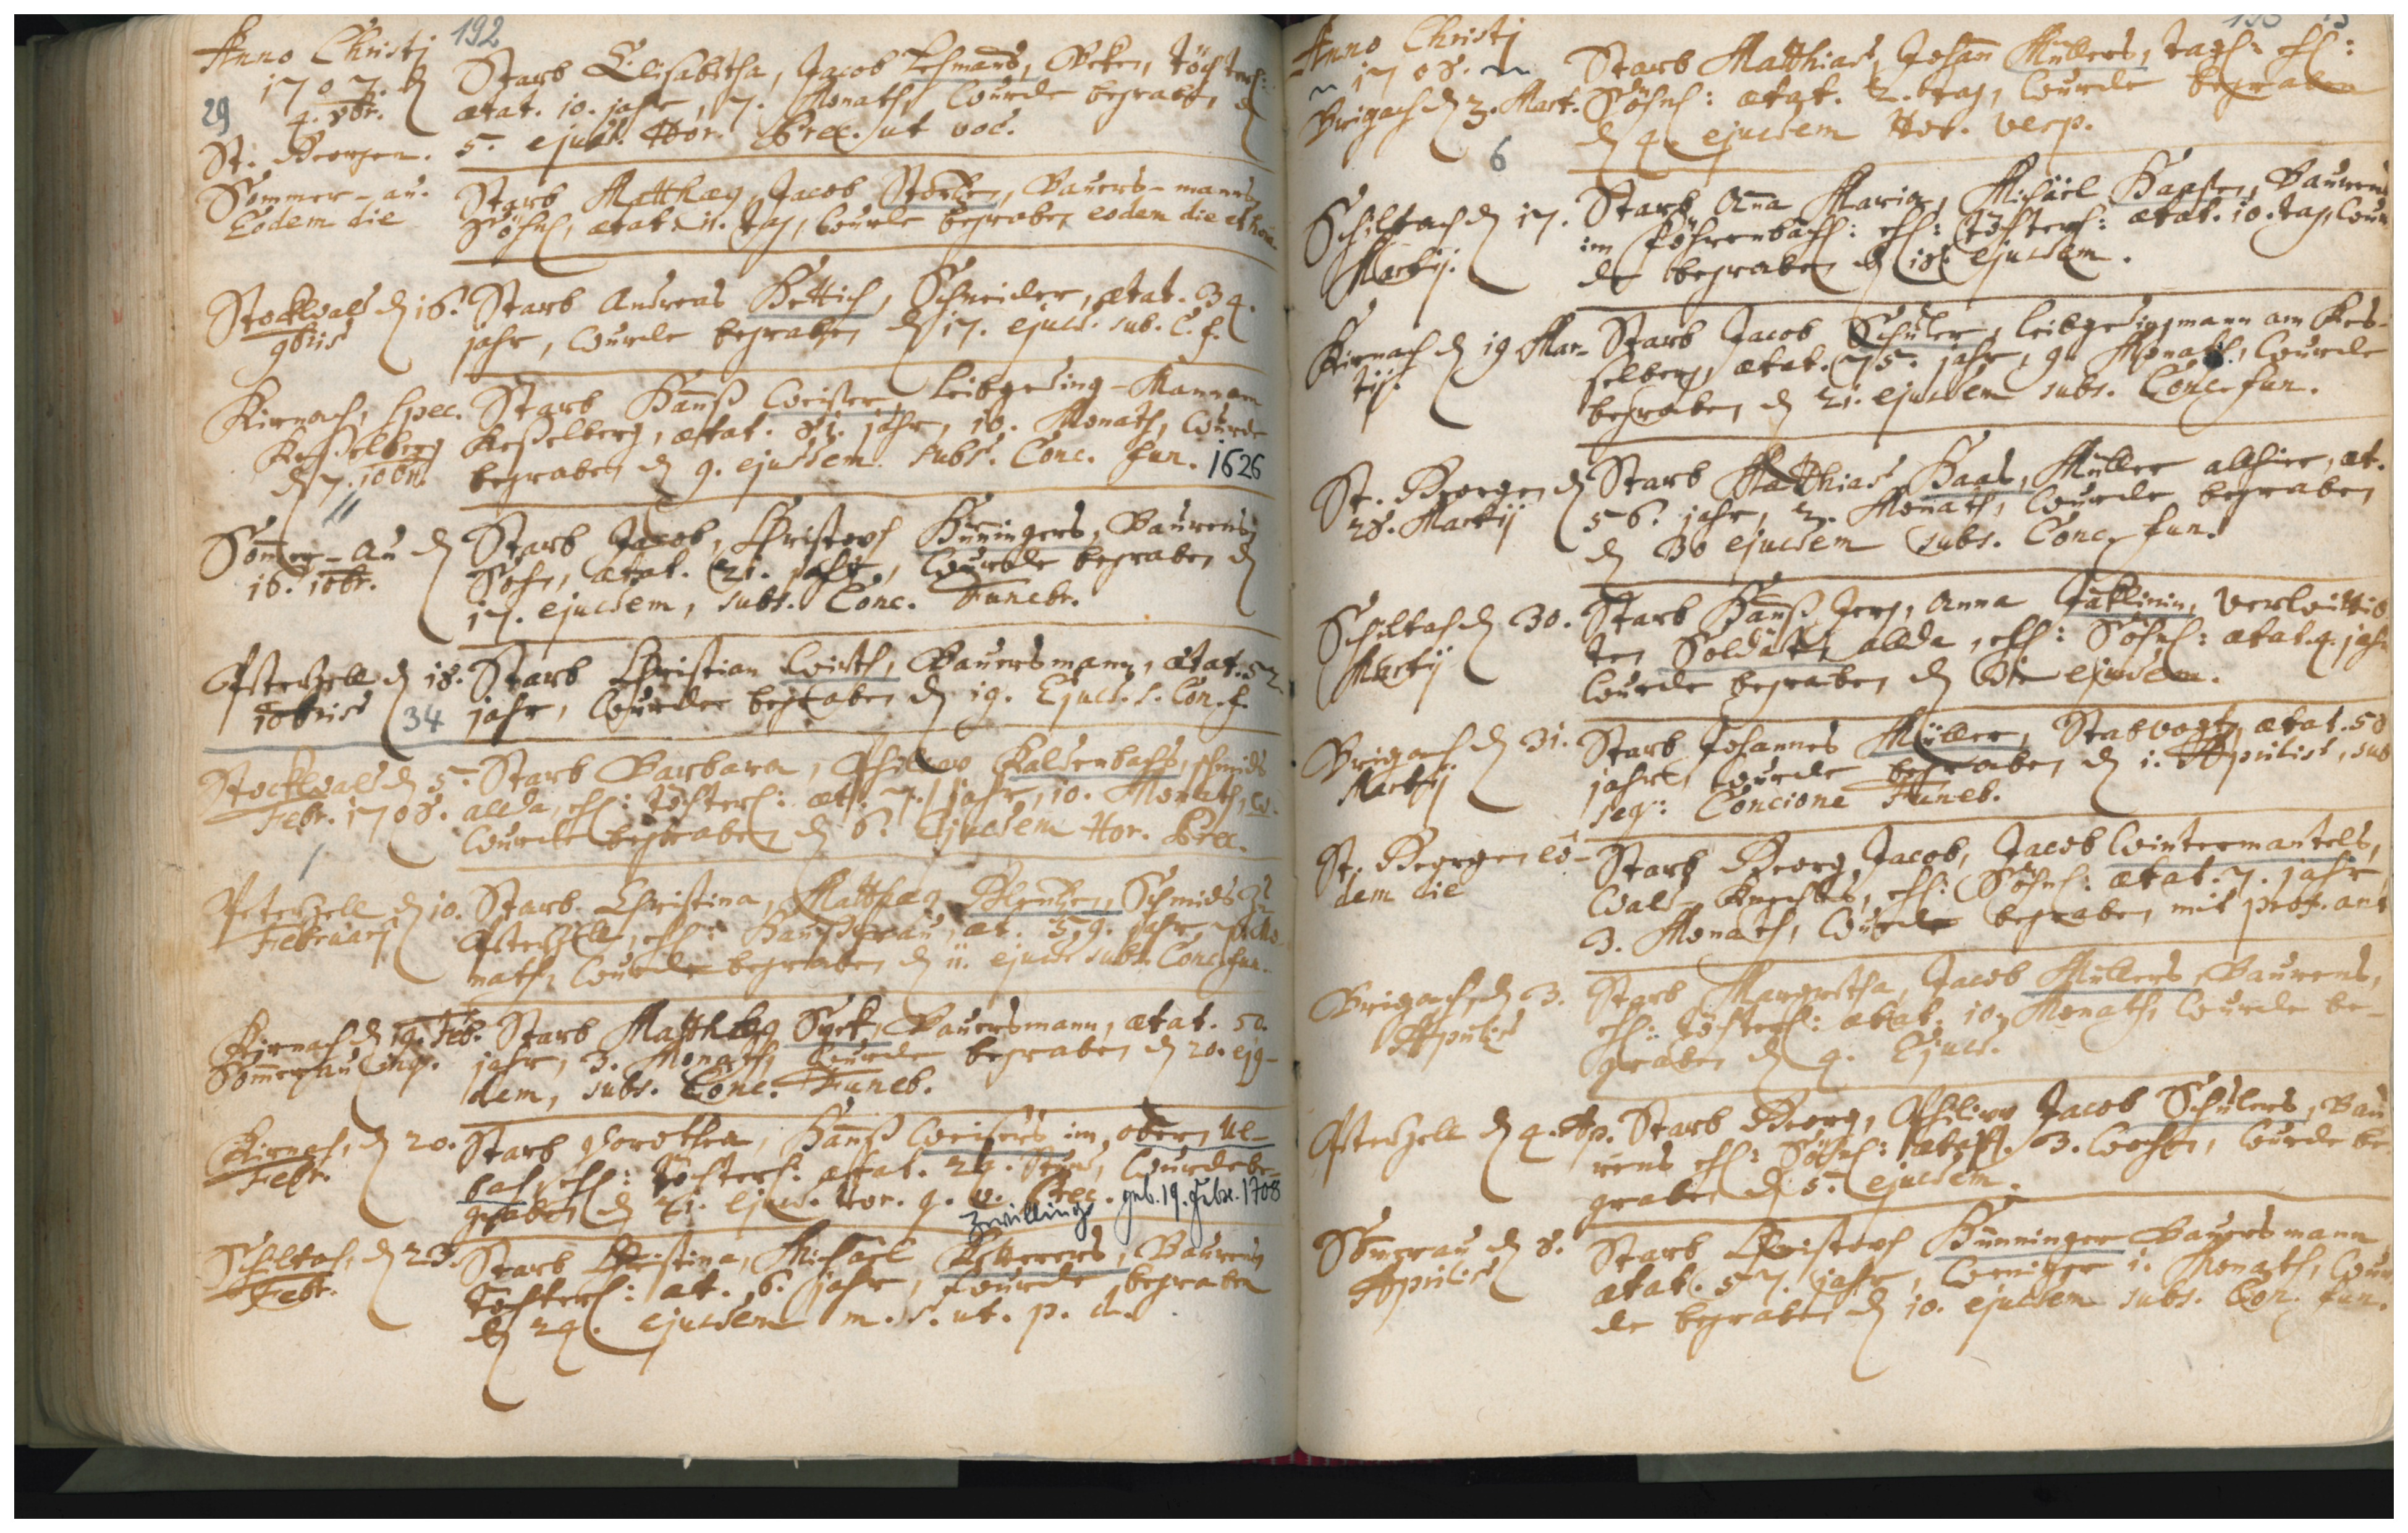 192
Anno Christi
1707. d
29
4. 9br.
St. Georgen.
Starb Elisabetha, Jacob Lehmans, Beken, töchterl:
ætat. 10. jahr, 7. Monath, wurde begrab, d
5. ejusd. Hor. Prec. ut voc.
Sommer-au.
Eodem die
Starb Matthæy, Jacob Storken, Bauers-manns
Söhnl, ætat. 11. tag, wurde begraben eodem die et hora
Stockwald d 16.
9bris
Starb Andreas Hettich, Schneider, ætat. 34.
jahr, wurde begraben d 17. ejusd. sub. C. f.
Kirnach, spec.
Kesselberg
d 7. 10br.
11
Starb Hanß Weisser, Leibgeding-Mann am
Keßelberg, ætat. 81. jahr, 10. Monath, wurde
begraben d 9. ejusdem subs. Conc. fun. 1626
Somer-au d
16. 10br.
Starb Jacob, Christoph Hünningers, Baurens
Sohn, ætat. 21. jahr, wurde begraben d
17. ejusdem, subs. Conc. Funebr.
Peterzell d 18.
10bris
34
Starb Christian Wirth, Bauersmann, ætat. 52.
jahr, wurde begraben d 19. Ejusd. s. Con. f.
Stockwald d 5.
Febr. 1708.
1
Starb Barbara, Philipp Kaltenbachs, schmids
allda, ehl: töchterl: æt. 7. jahr, 10. Monath, w.
wurde begraben d 6. Ejusdem Hor. Prec.
Peterzell d 10.
Februarij
Starb Christina, Matthæy Schmids z
Peterzell, ehl: Haußfrau, æt. 59. jahr, 7. Mo-
nath, wurde begraben d 11. ejusd. subs. Conc. fun.
Kirnach d 19. Feb.
Sommerau
Starb Matthæy Syek, Bauersmann, ætat. 50.
jahr, 3. Monath, wurde begraben d 20. ejus-
dem, subs. Conc. Funeb.
Kirnach, d 20.
Febr.
Starb Dorothea, Hanß Weissers im obern
bach, ehl: töchterl: ætat. 24. Stund, wurde be-
graben d 21. Ejusd. Hor. Prec. geb. 19. Febr. 1708
Zwilling
Schiltach, d 23.
Febr.
Starb Christina, Michael Baurens
töchterl: æt. 6. jahr, wurde begraben
d 24. ejusdem m. s. ut. p. d.
Anno Christi
1708.
Brigach d 3. Mart.
6
Starb Matthias, Johann Müllers, tagl: ehl:
Söhnl: ætat. 2. tag, wurde begraben
d 4. ejusdem Hor. vesp.
Schiltach d 17.
Martij.
Starb Anna Maria, Michael Haasen, Baurens
im Föhrenbächl: ehl: töchterl: ætat. 10. tag, wur-
de begraben d 18. ejusdem.
Kirnach d 19 Mar-
tij.
Starb Jacob Schuler, leibgedingmann am Kes-
selberg, ætat. 75. jahr, 9. Monath, wurde
begraben d 21. ejusdem subs. Conc. fun.
St. Georgen d
28. Martij
Starb Matthias Haas, Müller allhier, æt.
56. jahr, 2. Monath, wurde begraben
d 30 ejusdem subs. Conc. fun.
Schiltach d 30.
Martij
Starb Hanß Jerg, Anna Jäklinin, verwittib
ten Soldatin allda, ehl: Söhnl: ætat. 4. jahr
wurde begraben d 31 ejusdem.
Brigach d 31.
Martij
Starb Johannes Müller, Stabvogt, ætat. 58
jahr, wurde begraben d 1. Aprilis, sub
seq: Concione Funeb.
St. Georgen eo-
dem die
Starb Georg Jacob, Jacob Wintermantels,
Wald-Knechts, ehl: Söhnl: ætat. 7. jahr
3. Monath, wurde begraben mit
Brigach, d 3.
Aprilis
Starb Margretha, Jacob Müllers Baurens,
ehl: töchterl: ætat. 10. Monath, wurde be-
graben d 4. Ejusd.
Peterzell d 4. Ap.
Starb Georg, Philipp Jacob Schulers, Bau
rens ehl: Söhnl: ætat. 3. wochen, wurde be-
graben d 5. ejusdem.
Somerau d 8.
Aprilis
Starb Christoph Hünninger Bauersmann
ætat. 57. jahr, weniger 1. Monath, wur
de begraben d 10. ejusdem subs. Con. fun.